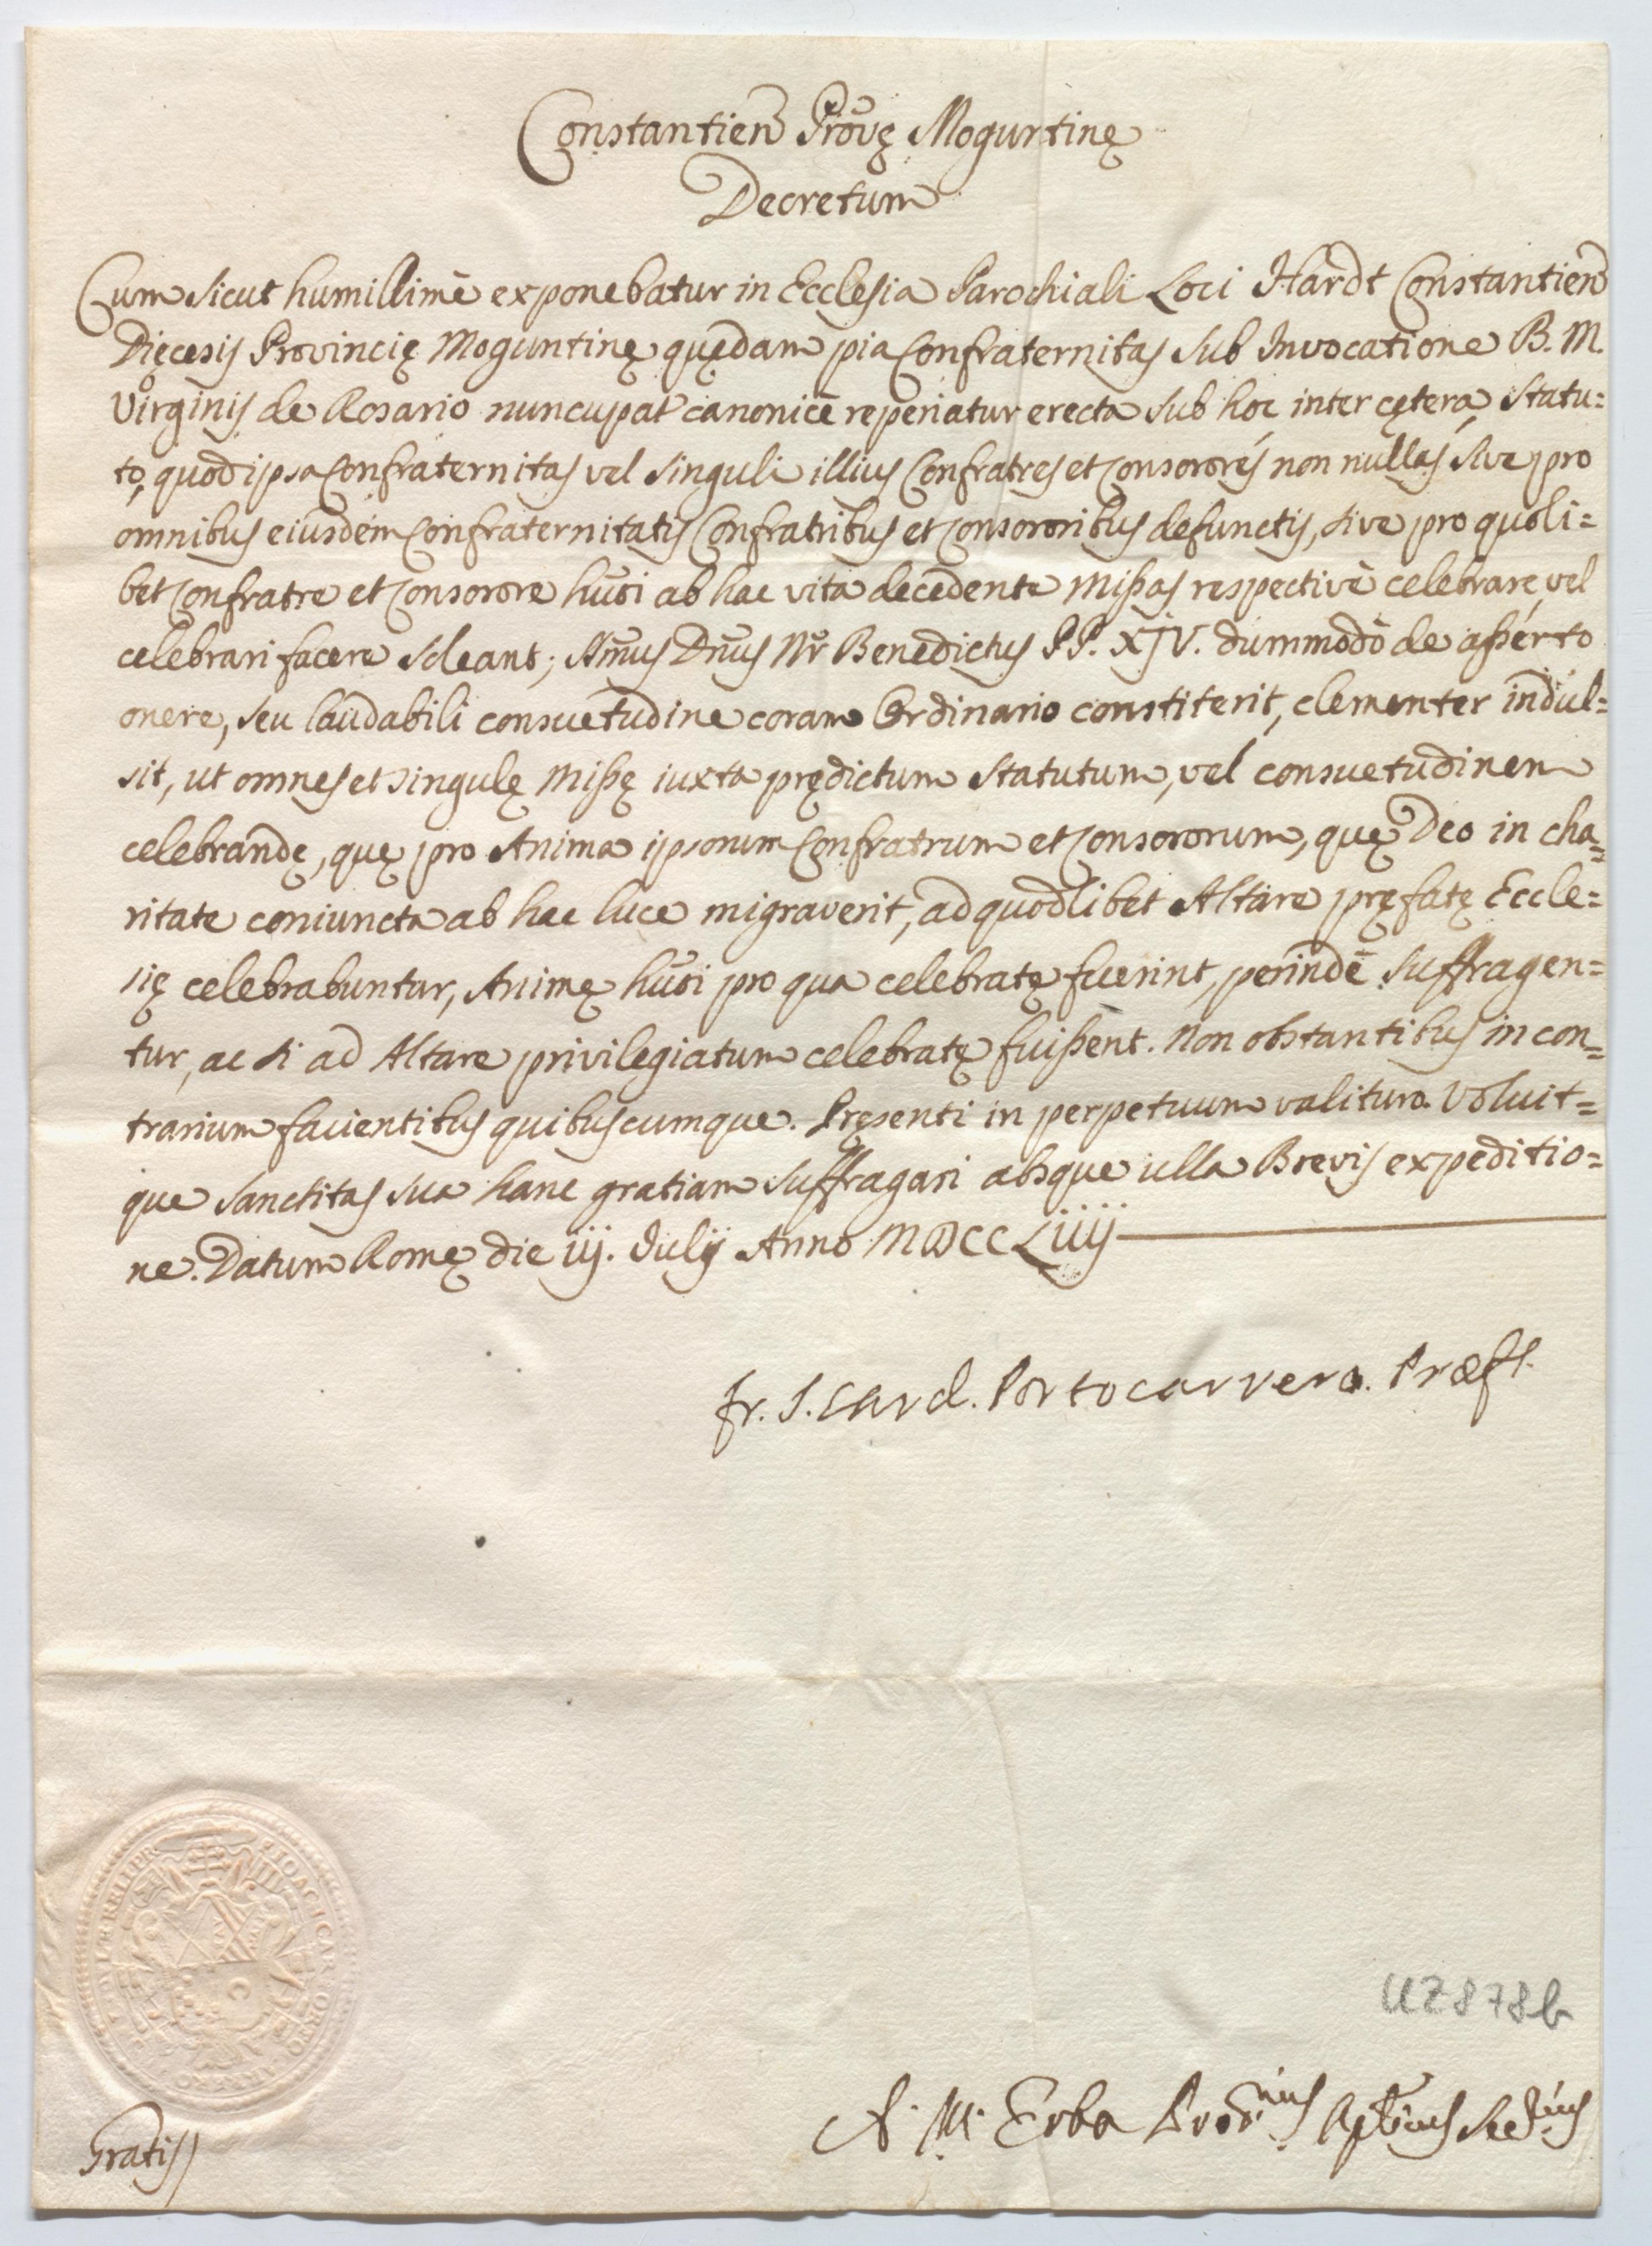 Constantien Prov̄ę Moguntinę
Decretum
Cum sicut humillimè exponebatur in Ecclesia Parochiali Loci Hardt Constantien
Dięcesis Provincię Moguntinę quędam pia Confraternitas sub Invocatione B. M.
Virginis de Rosario nuncupat canonicè reperiatur erecta sub hoc inter cętera statu=
to, quod ipsa Confraternitas vel singuli illius Confratres et Consorores non nullas sive pro
omnibus eiusdem Confraternitatis Confratribus et Consororibus defunctis, sive pro quoli=
bet Confratre et Consorore hūsi ab hac vita decedente Missas respectivè celebrare, vel
celebrari facere soleant; Sm̃us Dn̄us Nr̃ Benedictus PP. XJV. dummodò de asserto
onere, seu laudabili consuetudine coram Ordinario constiterit, clementer indul=
sit, ut omnes et singulę Missę iuxta prędictum statutum, vel consuetudinem
celebrandę, quę pro Anima ipsorum Confratrum et Consororum, quę Deo in cha=
ritate coniuncta ab hac luce migraverit, ad quodlibet Altare pręfatę Eccle=
się celebrabuntur, Animę hūsi pro qua celebratę fuerint, perindè suffragen=
tur, ac si ad Altare privilegiatum celebratę fuissent. Non obstantibus in con=
trarium facientibus quibuscumque. Pręsenti in perpetuum valituro. Voluit=
que Sanctitas sua hanc gratiam suffragari absque ulla Brevis expeditio=
ne. Datum Romę die iij. Julij Anno MDCCLiiij
fr. J. Card. Portocarrero. Præfs.
IOAC. I. CAR.
RELI. PR.
UZ 878b
A. M. Erba
Gratis